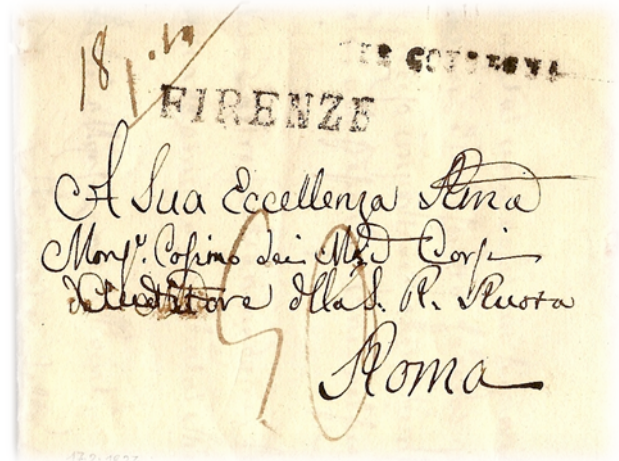 FIRENZE
A Sua Eccellenza Rma
Monsr. Cosimo dei Corsi
Auditore della S. R. Ruota
Roma